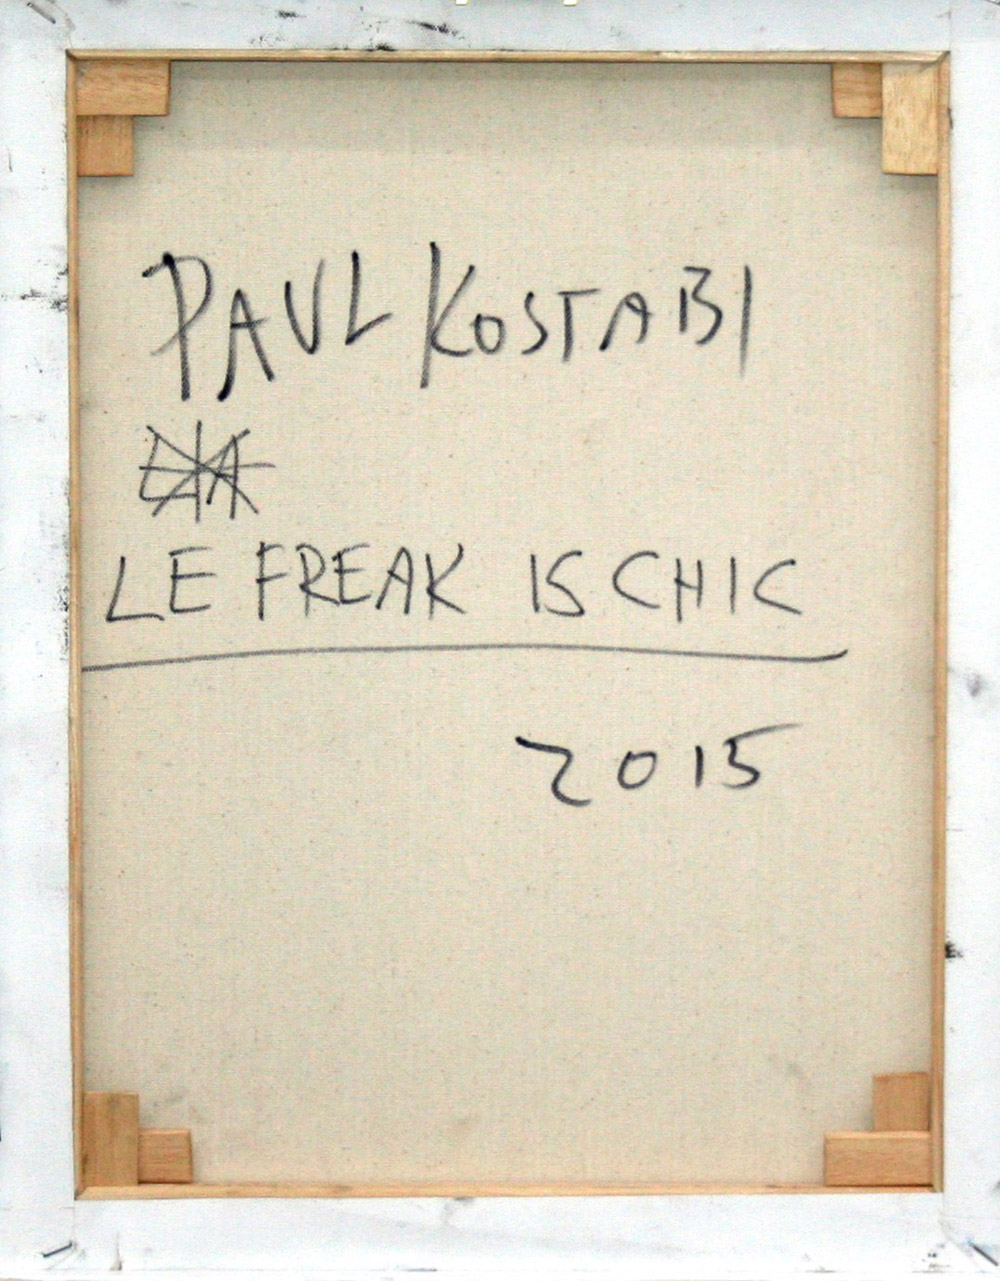 PAUL KOSTABI
LE FREAK IS CHIC
2015